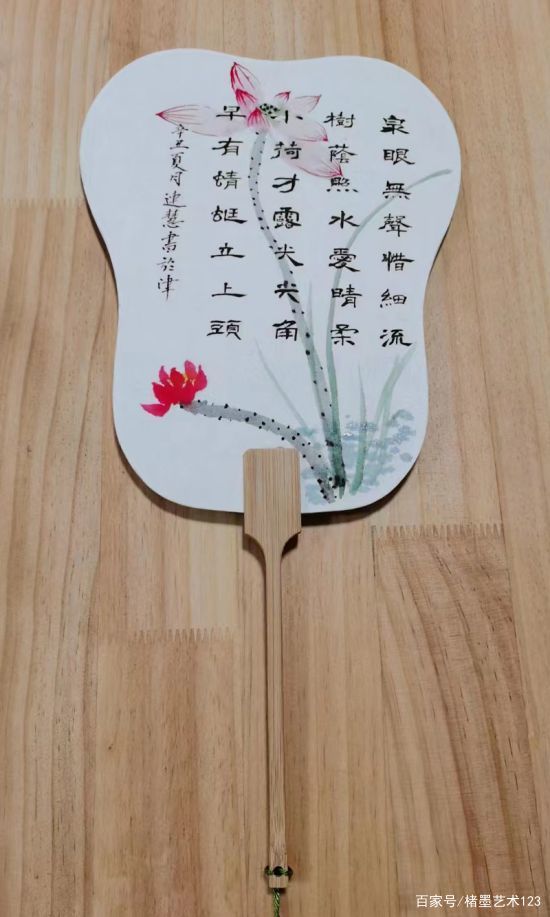 泉眼無聲惜細流
樹蔭照水愛晴柔
小荷才露尖尖角
早有蜻蜓立上頭
辛丑夏月連慧書於津
百家号/楮墨艺术123